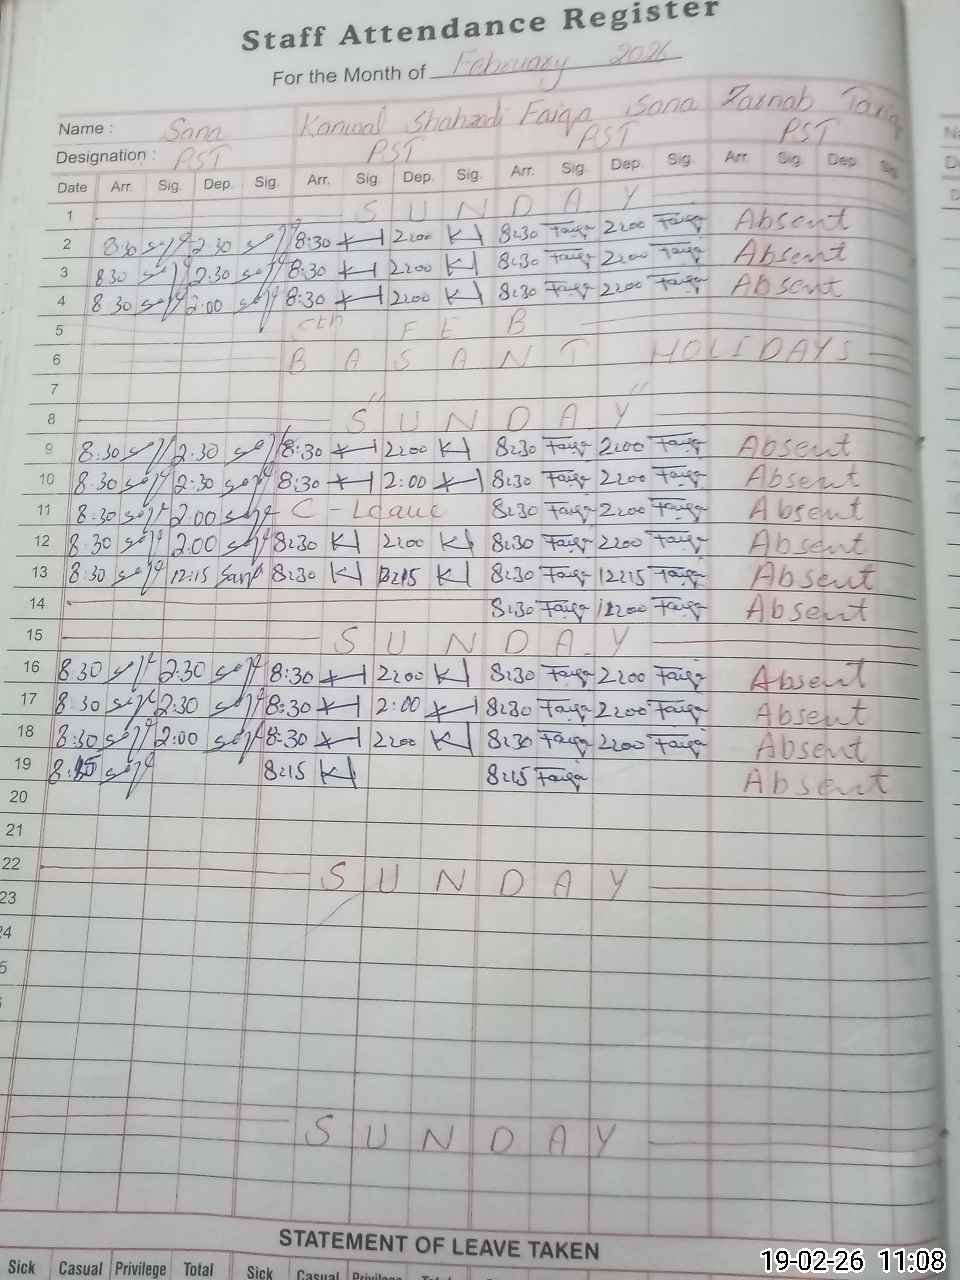 Staff Attendance Register
For the Month of February 2026
Name : Sana Kanwal Shahzadi Faiqa Sana Zainab Tariq
Designation : PST PST PST PST
Date Arr. Sig. Dep. Sig. Arr. Sig. Dep. Sig. Arr. Sig. Dep. Sig. Arr. Sig. Dep. Sig.
1 SUNDAY
2 8:30 2:30 8:30 2:00 8:30 Faiqa 2:00 Faiqa Absent
3 8:30 2:30 8:30 2:00 8:30 Faiqa 2:00 Faiqa Absent
4 8:30 2:00 8:30 2:00 8:30 Faiqa 2:00 Faiqa Absent
5 5th FEB
6 BASANT HOLIDAYS
7 " "
8 SUNDAY
9 8:30 2:30 8:30 2:00 8:30 Faiqa 2:00 Faiqa Absent
10 8:30 2:30 8:30 2:00 8:30 Faiqa 2:00 Faiqa Absent
11 8:30 2:00 C-Leave 8:30 Faiqa 2:00 Faiqa Absent
12 8:30 2:00 8:30 2:00 8:30 Faiqa 2:00 Faiqa Absent
13 8:30 12:15 8:30 8:30 Faiqa 12:15 Faiqa Absent
14 8:30 Faiqa 12:00 Faiqa Absent
15 SUNDAY
16 8:30 2:30 8:30 2:00 8:30 Faiqa 2:00 Faiqa Absent
17 8:30 2:30 8:30 2:00 8:30 Faiqa 2:00 Faiqa Absent
18 8:30 2:00 8:30 2:00 8:30 Faiqa 2:00 Faiqa Absent
19 8:15 8:15 Faiqa Absent
20
21
22 SUNDAY
23
SUNDAY
STATEMENT OF LEAVE TAKEN
Sick Casual Privilege Total Sick Casual
19-02-26 11:08